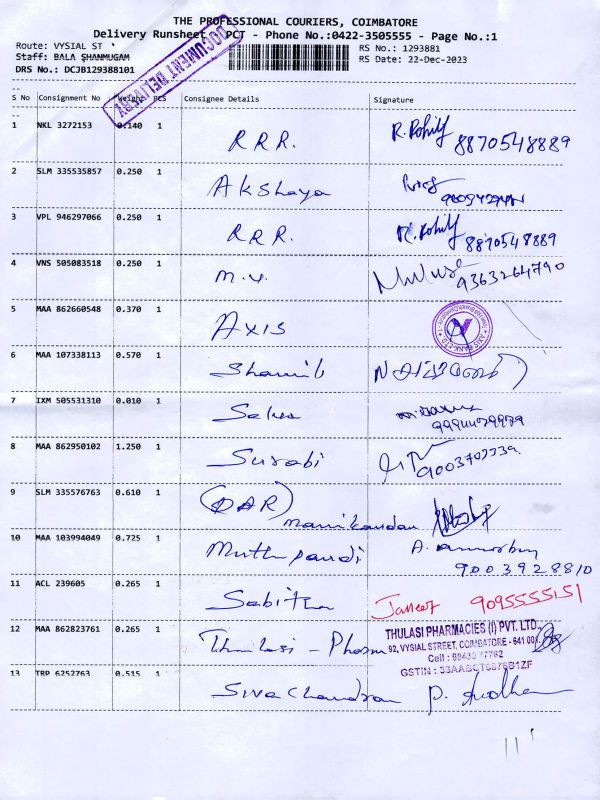 THE PROFESSIONAL COURIERS, COIMBATORE
Delivery Runsheet PCT - Phone No.:0422-3505555 - Page No.:1
Route: VYSIAL ST
Staff: BALA SHANMUGAM
DRS No.: DCJB129388101
RS No.: 1293881
RS Date: 22-Dec-2023
DOCUMENT DELIVERY
S No Consignment No Weight PCS Consignee Details Signature
1 NKL 3272153 0.140 1 R.R.R. R. Rohith 8870548889
2 SLM 335535857 0.250 1 Akshaya
3 VPL 946297066 0.250 1 R.R.R. R. Rohith 8870548889
4 VNS 505083518 0.250 1 M.V. 9363264790
5 MAA 862660548 0.370 1 AXIS AXIS BANK LTD
6 MAA 107338113 0.570 1
7 IXM 505531310 0.010 1 Selva
8 MAA 862950102 1.250 1 Surabi
9 SLM 335576763 0.610 1 (DAR) Manikandan
10 MAA 103994049 0.725 1 Muthupandi A. 9003928810
11 ACL 239605 0.265 1 Sabitha 9095555151
12 MAA 862823761 0.265 1 Thulasi - Pharm
THULASI PHARMACIES (I) PVT. LTD.,
92, VYSIAL STREET, COIMBATORE - 641 001.
Cell :
GSTIN :
13 TRP 6252763 0.515 1 Siva Chandran P.